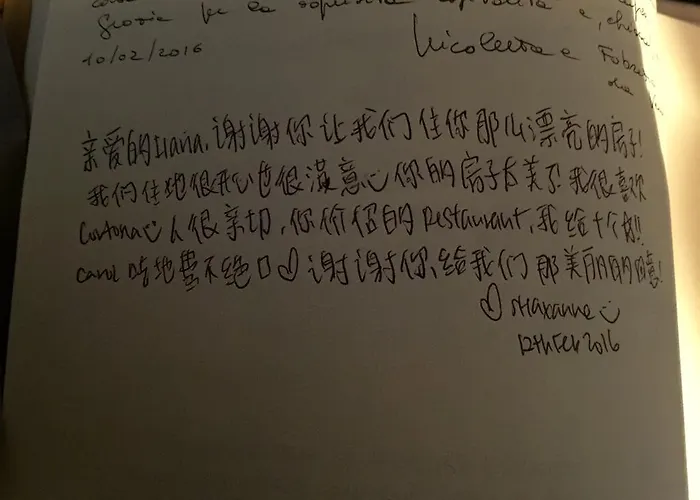 Grazie per la
10/02/2016
Nicoletta e
亲爱的Ilaria, 谢谢你让我们住你那么漂亮的房子!
我们住地很开心也很满意 你的房子太美了 我很喜欢
Cortona 人很亲切, 你介绍的 Restaurant, 我给十个👍!!
Carol 吃地赞不绝口♡ 谢谢你, 给我们那美丽的回忆!
♡ Maxanne
12th Feb 2016